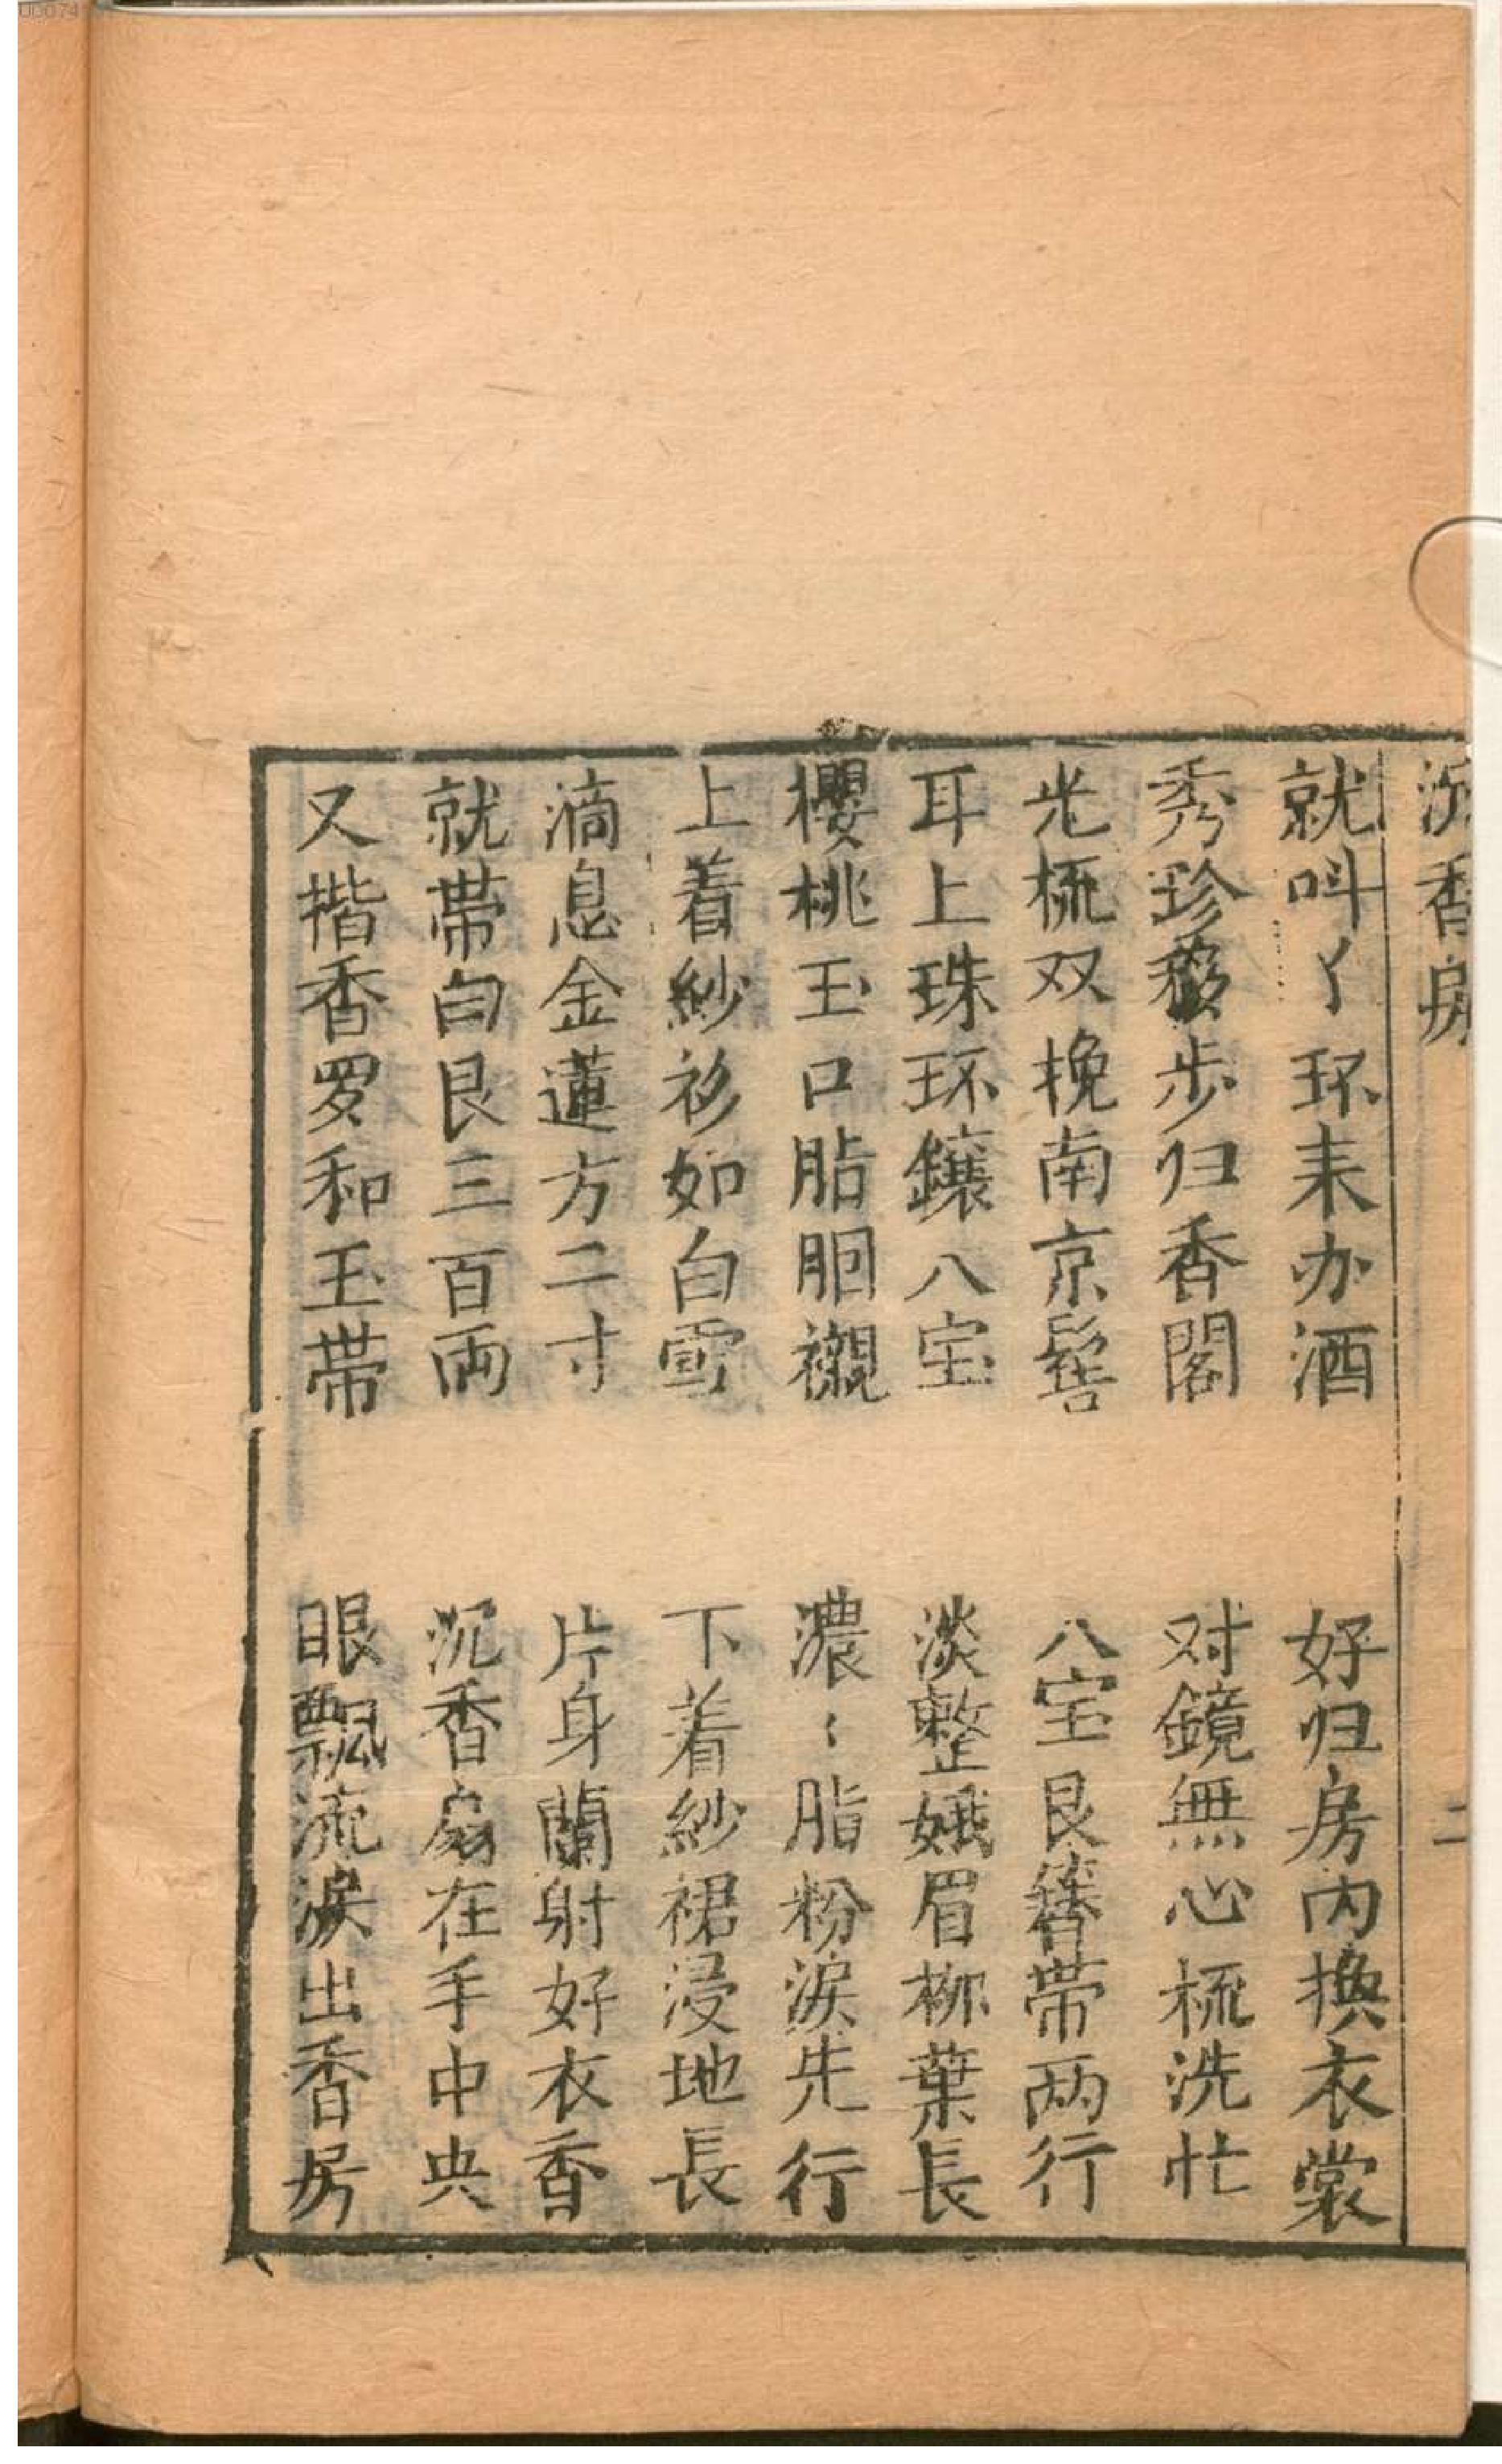 香房
二
就呌丫环耒办酒 好归房内換衣裳
秀珍移步归香閣 对鏡無心梳洗忙
光梳双挽南京髻 八宝艮簪带两行
耳上珠环鑲八宝 淡整娥眉柳葉長
櫻桃玉口胭襯 濃〻脂粉淚先行
上着紗衫如白雪 下着紗裙浸地長
滴息金蓮方二寸 片身蘭射好衣香
就帶白艮三百両 沉香扇在手中央
又揩香罗和玉帶 眼飄流淚出香房